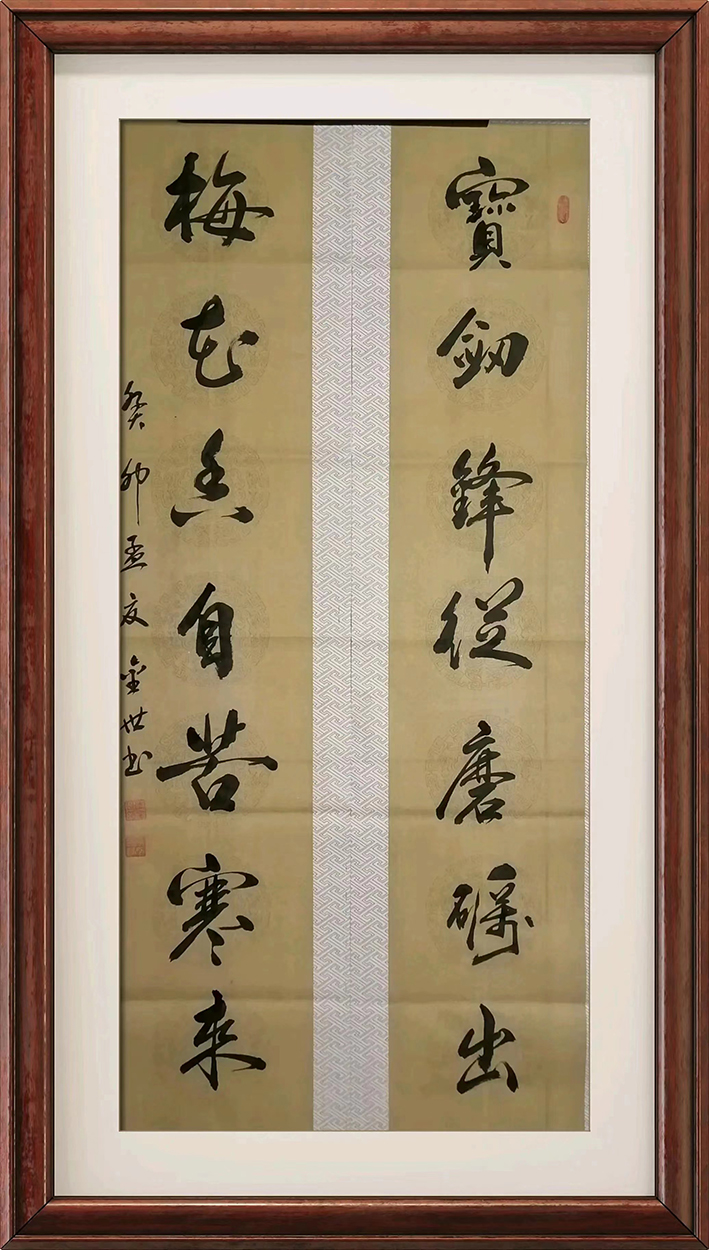 寶劒鋒從磨礪出
梅花香自苦寒来
癸卯孟夏金世书